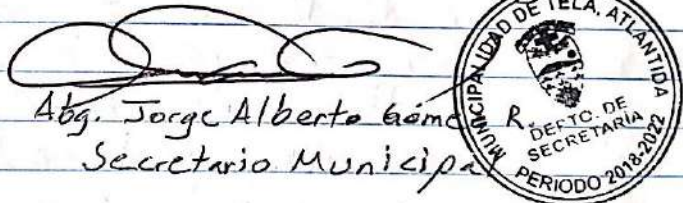 Abg. Jorge Alberto Góme R.
Secretario Municipal
MUNICIPALIDAD DE TELA, ATLANTIDA
DEPTO. DE
SECRETARIA
PERIODO 2018-2022